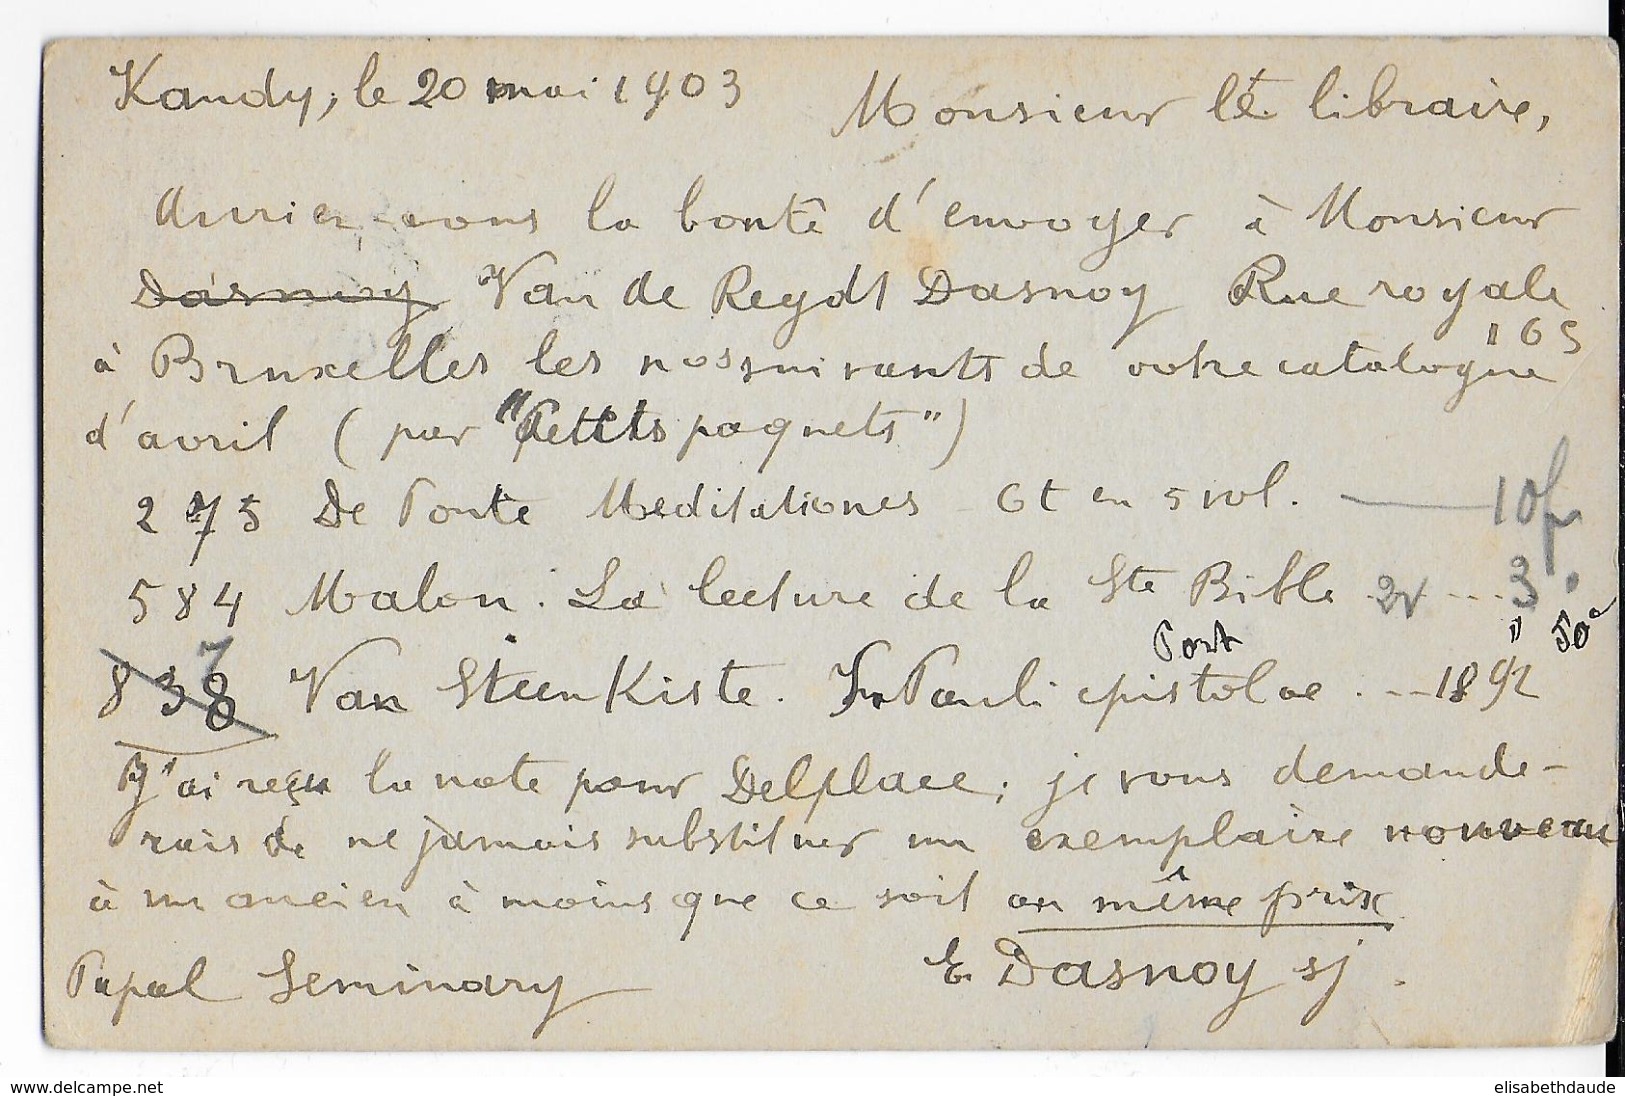 Kandy, le 20 mai 1903
Monsieur le libraire,
Auriez-vous la bonté d'envoyer à Monsieur
Dasnoy Van de Reydt Dasnoy Rue royale
165
à Bruxelles les nos suivants de votre catalogue
d'avril (par "Petits paquets")
275 De Ponte Meditationes 6t en 5 vol. — 10 fr
584 Malou. La lecture de la Ste Bible 2v ... 3.
Port " 50c
7
838 Van Steenkiste. In Pauli epistolae . -- 1892
J'ai reçu la note pour Delplace; je vous demande-
rais de ne jamais substituer un exemplaire nouveau
à un ancien à moins que ce soit au même prix
Papal Seminary
E Dasnoy sj.
www.delcampe.net
elisabethdaude